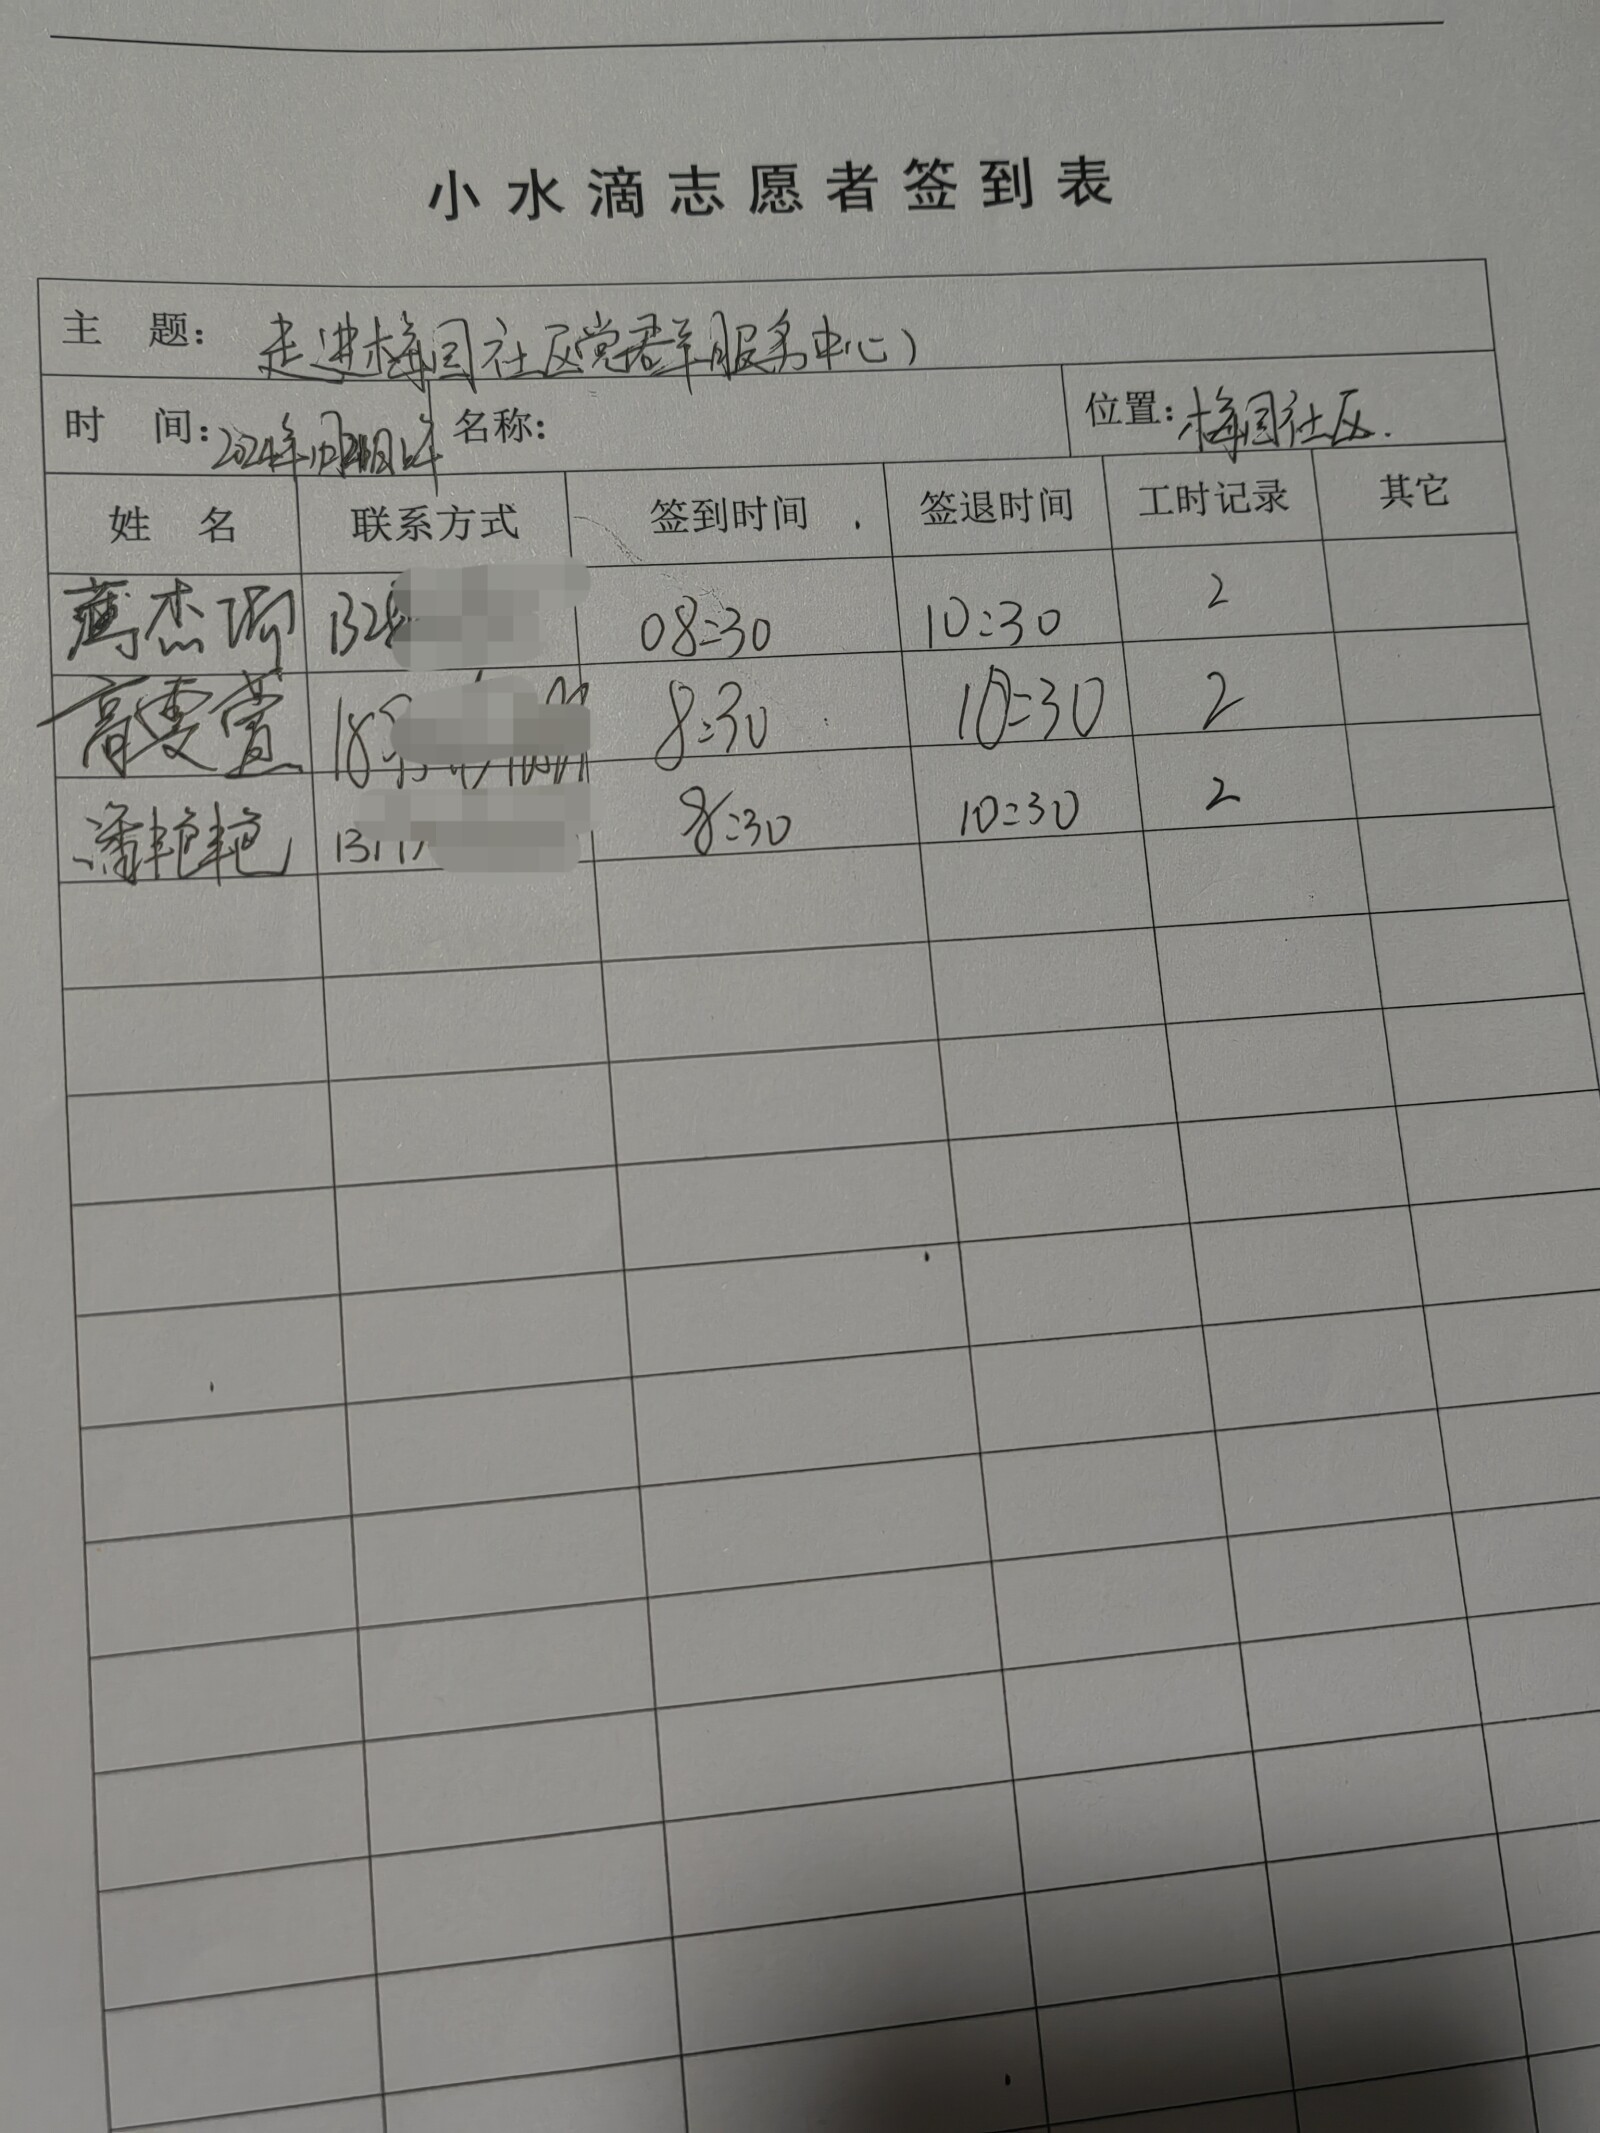 小水滴志愿者签到表
主 题: 走进梅园社区党群服务中心)
时 间: 2024年 名称: 位置: 梅园社区.
姓 名 联系方式 签到时间 签退时间 工时记录 其它
杰 132 08:30 10:30 2
高雯萱 18 8:30 10:30 2
潘艳艳 131 8:30 10:30 2